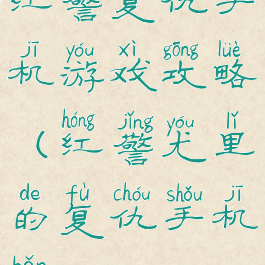 红警复仇手
jī yóu xì gōng lüè
机游戏攻略
hóng jǐng yóu lǐ
（红警尤里
de fù chóu shǒu jī
的复仇手机